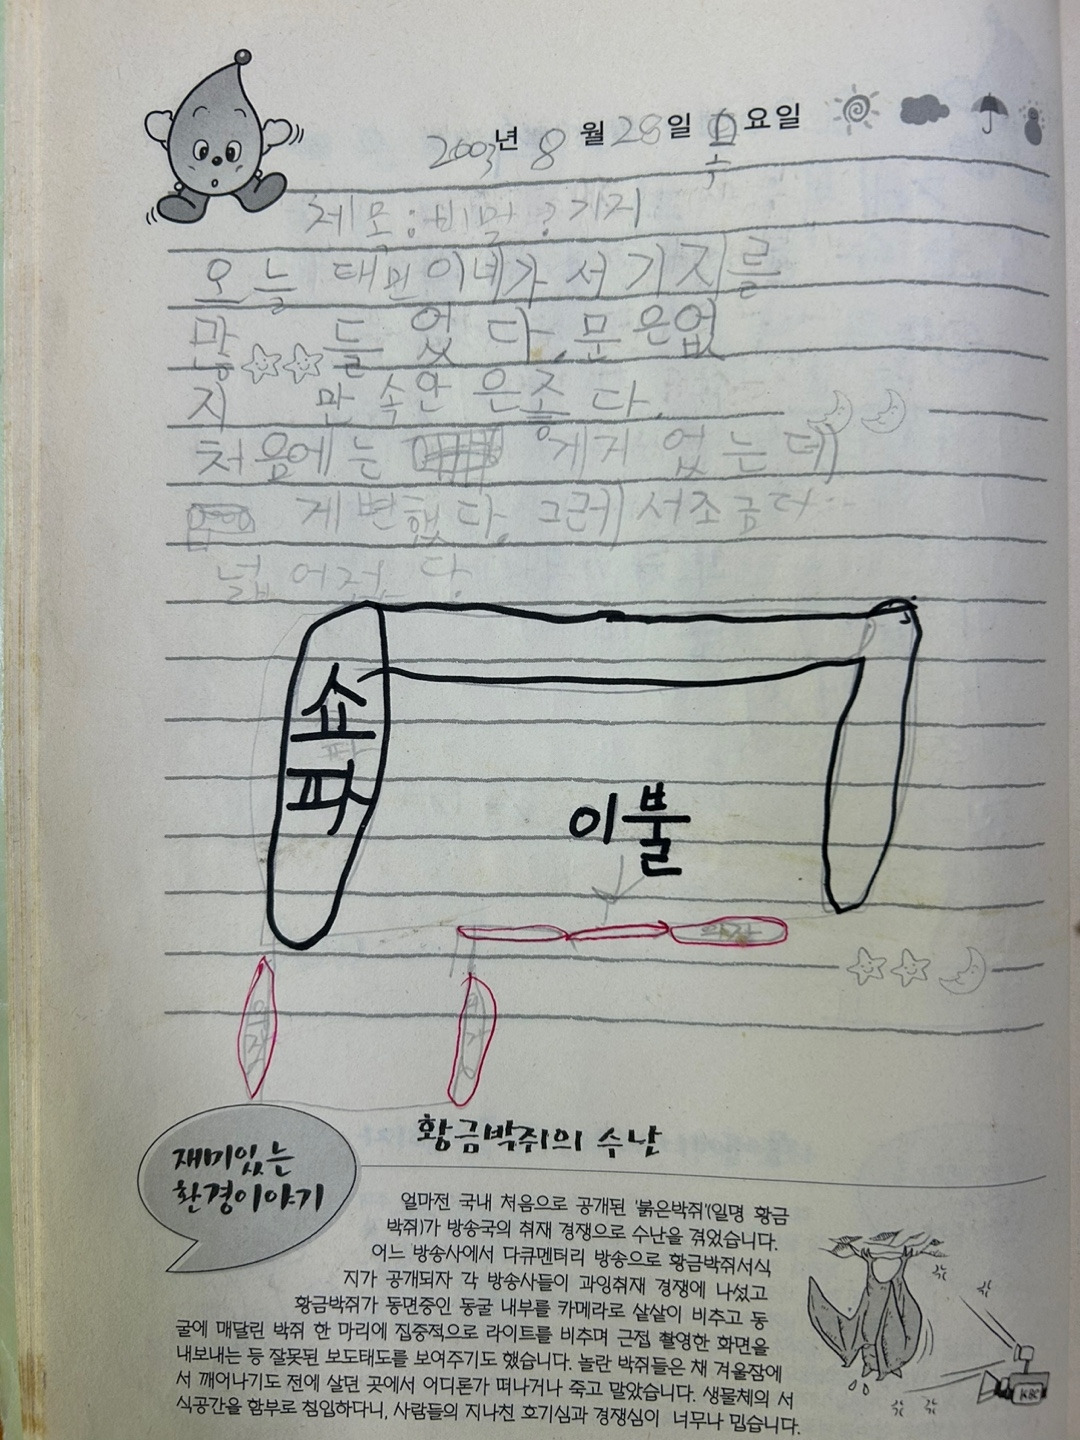 2003년 8월 28일 목요일
제목:비밀?기지
오늘 태민이네가 서 기지를
많들었다.문은없
지 만 속안 은좋다.
처음에는 게지 없는데
게변했다. 그레서조금더
넓어졌다.
쇼파
이불
의자
의자
의자
황금박쥐의 수난
재미있는
환경이야기
얼마전 국내 처음으로 공개된 '붉은박쥐'(일명 황금
박쥐)가 방송국의 취재 경쟁으로 수난을 겪었습니다.
어느 방송사에서 다큐멘터리 방송으로 황금박쥐서식
지가 공개되자 각 방송사들이 과잉취재 경쟁에 나섰고
황금박쥐가 동면중인 동굴 내부를 카메라로 샅샅이 비추고 동
굴에 매달린 박쥐 한 마리에 집중적으로 라이트를 비추며 근접 촬영한 화면을
내보내는 등 잘못된 보도태도를 보여주기도 했습니다. 놀란 박쥐들은 채 겨울잠에
서 깨어나기도 전에 살던 곳에서 어디론가 떠나거나 죽고 말았습니다. 생물체의 서
식공간을 함부로 침입하다니, 사람들의 지나친 호기심과 경쟁심이 너무나 밉습니다.
KBC